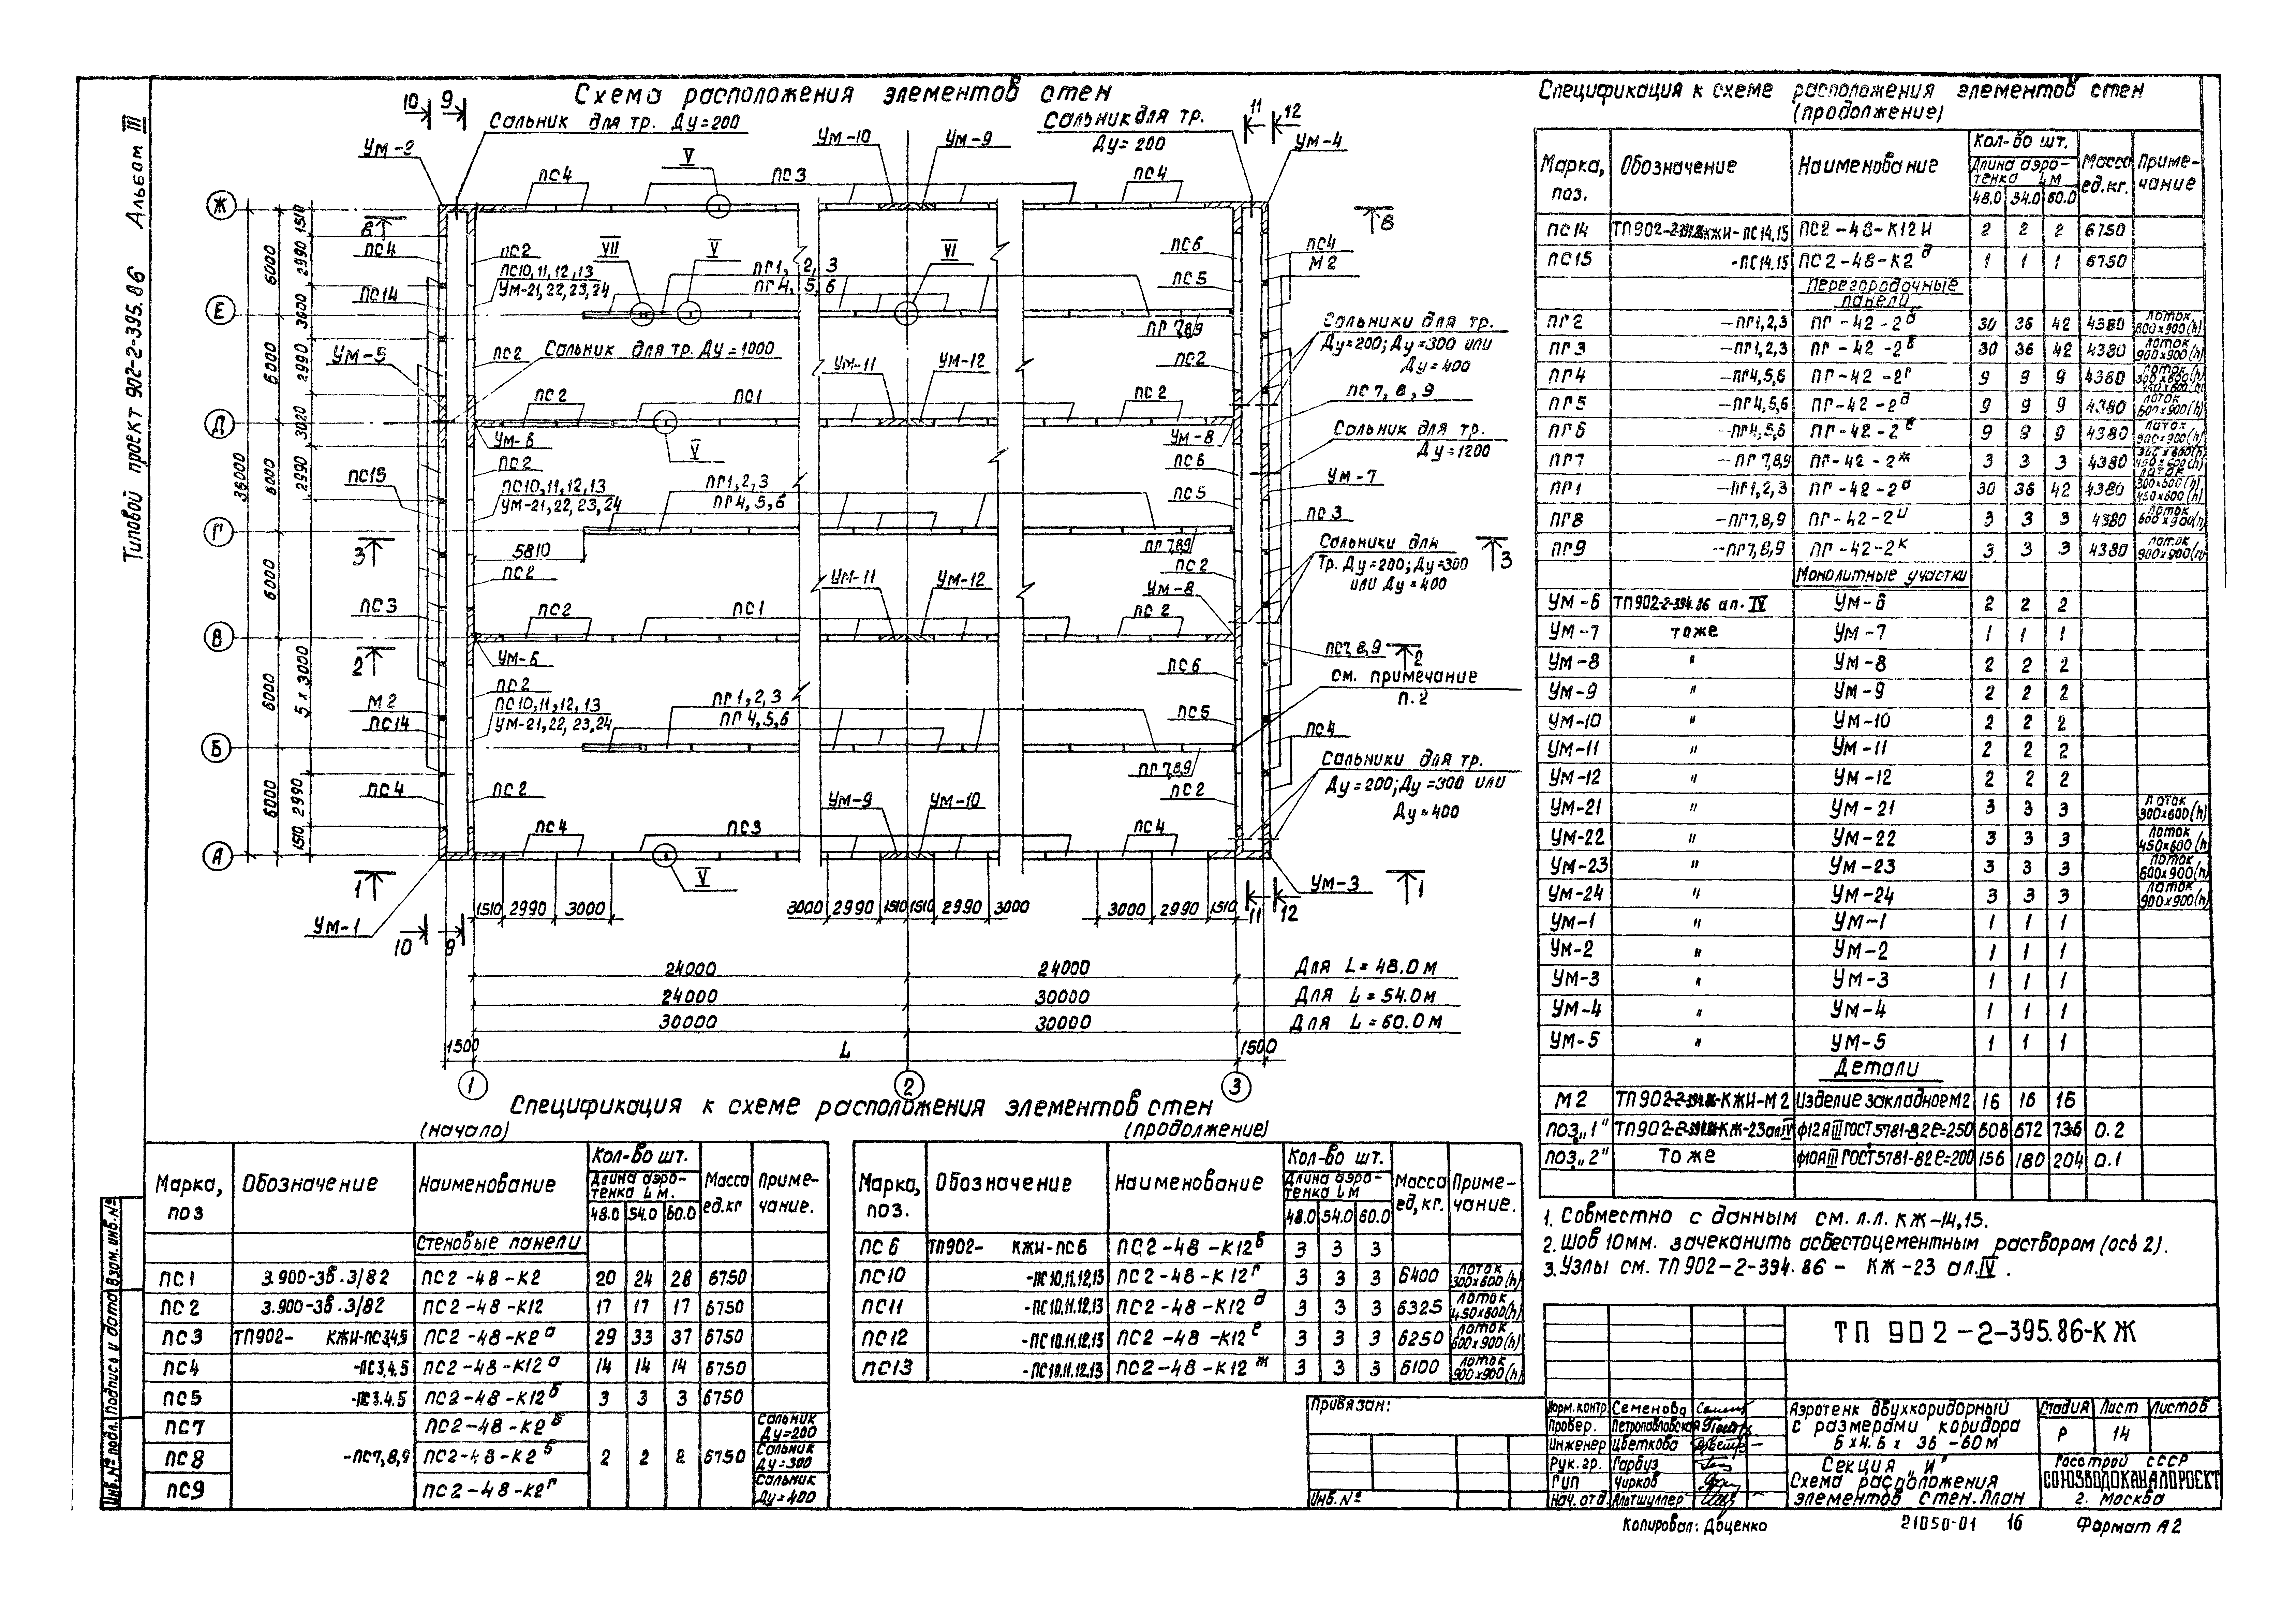 Типовой проект 902-2-395.86 Альбом III
Схема расположения элементов стен
10 9
Сальник для тр. Ду=200
Ум-2
Ум-10
Ум-9
Сальник для тр.
Ду=200
11 12
Ум-4
ПС4 V ПС3 ПС4
Ж
8
ПС4 ПС2 VII V VI ПС6 ПС4
М2
ПС10,11,12,13
Ум-21,22,23,24
ПГ1, 2, 3
ПГ4, 5, 6
ПС14
ПС5
Е
ПГ 7,8,9
Сальники для тр.
Ду=200; Ду=300 или
Ду=400
Ум-5 ПС2
Сальник для тр. Ду=1000
Ум-11 Ум-12 ПС2
ПС2 ПС1 ПС2
ПС7, 8, 9
Д
Ум-6 V Ум-8
Сальник для тр.
Ду=1200
ПС2 ПС6
ПС15
ПС10,11,12,13
Ум-21,22,23,24
ПГ1, 2, 3
ПГ4, 5, 6
ПС5
Ум-7
ПС3
Г
5810
ПГ 7,8,9
3 3
Сальники для
Тр. Ду=200; Ду=300
или Ду=400
ПС2 Ум-11 Ум-12 ПС2
Ум-8
ПС3 ПС2 ПС1 ПС2
В
Ум-6
2 2
ПС7,8,9
ПС6
см. примечание
п.2
ПС2
М2
ПС14
ПС10,11,12,13
Ум-21,22,23,24
ПГ1, 2, 3
ПГ4, 5, 6
ПС5
ПС4
Б
ПГ 7,8,9
Сальники для тр.
Ду=200; Ду=300 или
Ду=400
ПС4 ПС2 Ум-9 Ум-10 ПС2
ПС4 ПС3 ПС4
А
V
1 1
Ум-3
Ум-1
10 9
11 12
36000
6000 6000 6000 6000 6000 6000
1510 2990 3000 2990 3020 2990 5 х 3000 2990 1510
1510 2990 3000 3000 2990 1510 1510 2990 3000 3000 2990 1510
24000 24000 Для L=48.0 м
24000 30000 Для L=54.0м
30000 30000 Для L=60.0 м
1500 L 1500
1 2 3
Спецификация к схеме расположения элементов стен
(начало) (продолжение)
Марка, поз Обозначение Наименование Кол-во шт. Длина аэротенка L м. 48.0 54.0 60.0 Масса ед.кг Примечание.
Стеновые панели
ПС1 3.900-3в.3/82 ПС2-48-К2 20 24 28 6750
ПС2 3.900-3в.3/82 ПС2-48-К12 17 17 17 6750
ПС3 ТП902- КЖИ-ПС3,4,5 ПС2-48-К2а 29 33 37 6750
ПС4 -ПС3,4,5 ПС2-48-К12а 14 14 14 6750
ПС5 -ПС3.4.5 ПС2-48-К12б 3 3 3 6750
ПС7 ПС2-48-К2б Сальник Ду=200
ПС8 -ПС7,8,9 ПС2-48-К2 2 2 2 6750 Сальник Ду=300
ПС9 ПС2-48-К2г Сальник Ду=400
Марка, поз. Обозначение Наименование Кол-во шт. Длина аэротенка L м 48.0 54.0 60.0 Масса ед,кг. Примечание.
ПС6 ТП902- КЖИ-ПС6 ПС2-48-К12в 3 3 3
ПС10 -ПС10,11,12,13 ПС2-48-К12г 3 3 3 6400 Лоток 300х600(h)
ПС11 -ПС10.11.12,13 ПС2-48-К12д 3 3 3 6325 Лоток 450х600(h)
ПС12 -ПС10.11.12.13 ПС2-48-К12е 3 3 3 6250 Лоток 600х900(h)
ПС13 -ПС10.11.12,13 ПС2-48-К12ж 3 3 3 6100 Лоток 900х900(h)
Спецификация к схеме расположения элементов стен
(продолжение)
Марка, поз. Обозначение Наименование Кол-во шт. Длина аэротенка L м 48.0 54.0 60.0 Масса ед.кг. Примечание
ПС14 КЖИ-ПС14,15 ПС2-48-К12и 2 2 2 6750
ПС15 -ПС14.15 ПС2-48-К2д 1 1 1 6750
Перегородочные панели
ПГ2 -ПГ1,2,3 ПГ-42-2б 30 36 42 4380 Лоток 600х900(h)
ПГ3 -ПГ1,2,3 ПГ-42-2в 30 36 42 4380 Лоток 900х900(h)
ПГ4 -ПГ4,5,6 ПГ-42-2г 9 9 9 4380 Лоток 300х600(h) 450х600(h)
ПГ5 -ПГ4,5,6 ПГ-42-2д 9 9 9 4380 Лоток 600х900(h)
ПГ6 -ПГ4,5,6 ПГ-42-2е 9 9 9 4380 Лоток 900х900(h)
ПГ7 -ПГ7,8,9 ПГ-42-2ж 3 3 3 4380 300х600(h) 450х600(h)
ПГ1 -ПГ1,2,3 ПГ-42-2а 30 36 42 4380 Лоток 300х600(h) 450х600(h)
ПГ8 -ПГ7,8,9 ПГ-42-2и 3 3 3 4380 Лоток 600х900(h)
ПГ9 -ПГ7,8,9 ПГ-42-2к 3 3 3 4380 Лоток 900х900(h)
Монолитные участки
Ум-6 ТП902-2-394.86 ал. IV Ум-6 2 2 2
Ум-7 тоже Ум-7 1 1 1
Ум-8 " Ум-8 2 2 2
Ум-9 " Ум-9 2 2 2
Ум-10 " Ум-10 2 2 2
Ум-11 " Ум-11 2 2 2
Ум-12 " Ум-12 2 2 2
Ум-21 " Ум-21 3 3 3 Лоток 300х600(h)
Ум-22 " Ум-22 3 3 3 Лоток 450х600(h)
Ум-23 " Ум-23 3 3 3 Лоток 600х900(h)
Ум-24 " Ум-24 3 3 3 Лоток 900х900(h)
Ум-1 " Ум-1 1 1 1
Ум-2 " Ум-2 1 1 1
Ум-3 " Ум-3 1 1 1
Ум-4 " Ум-4 1 1 1
Ум-5 " Ум-5 1 1 1
Детали
М2 ТП902-2-394.86-КЖИ-М2 Изделие закладное М2 16 16 16
поз„1" КЖ-23 ал IV ф12АIII ГОСТ 5781-82 ℓ=250 608 672 736 0.2
поз„2" То же ф10АIII ГОСТ 5781-82 ℓ=200 156 180 204 0.1
1. Совместно с данным см. л.л. КЖ-14,15.
2. Шов 10мм. зачеканить асбестоцементным раствором (ось 2).
3. Узлы см. ТП902-2-394.86 - КЖ-23 ал.IV.
ТП 902-2-395.86-КЖ
Привязан:
Инв.№
Норм.контр. Семенова
Провер. Петропавловская
Инженер Цветкова
Рук.гр. Гарбуз
Гип Чирков
Нач.отд. Альтшуллер
Аэротенк двухкоридорный
с размерами коридора
6х4.6х 36-60м
Стадия Лист Листов
Р 14
Секция „И"
Схема расположения
элементов стен. План
Госстрой СССР
СОЮЗВОДОКАНАЛПРОЕКТ
г. Москва
Копировал: Доценко 21050-01 16 Формат А2
Инв.№ подл. Подпись и дата Взам. инв.№